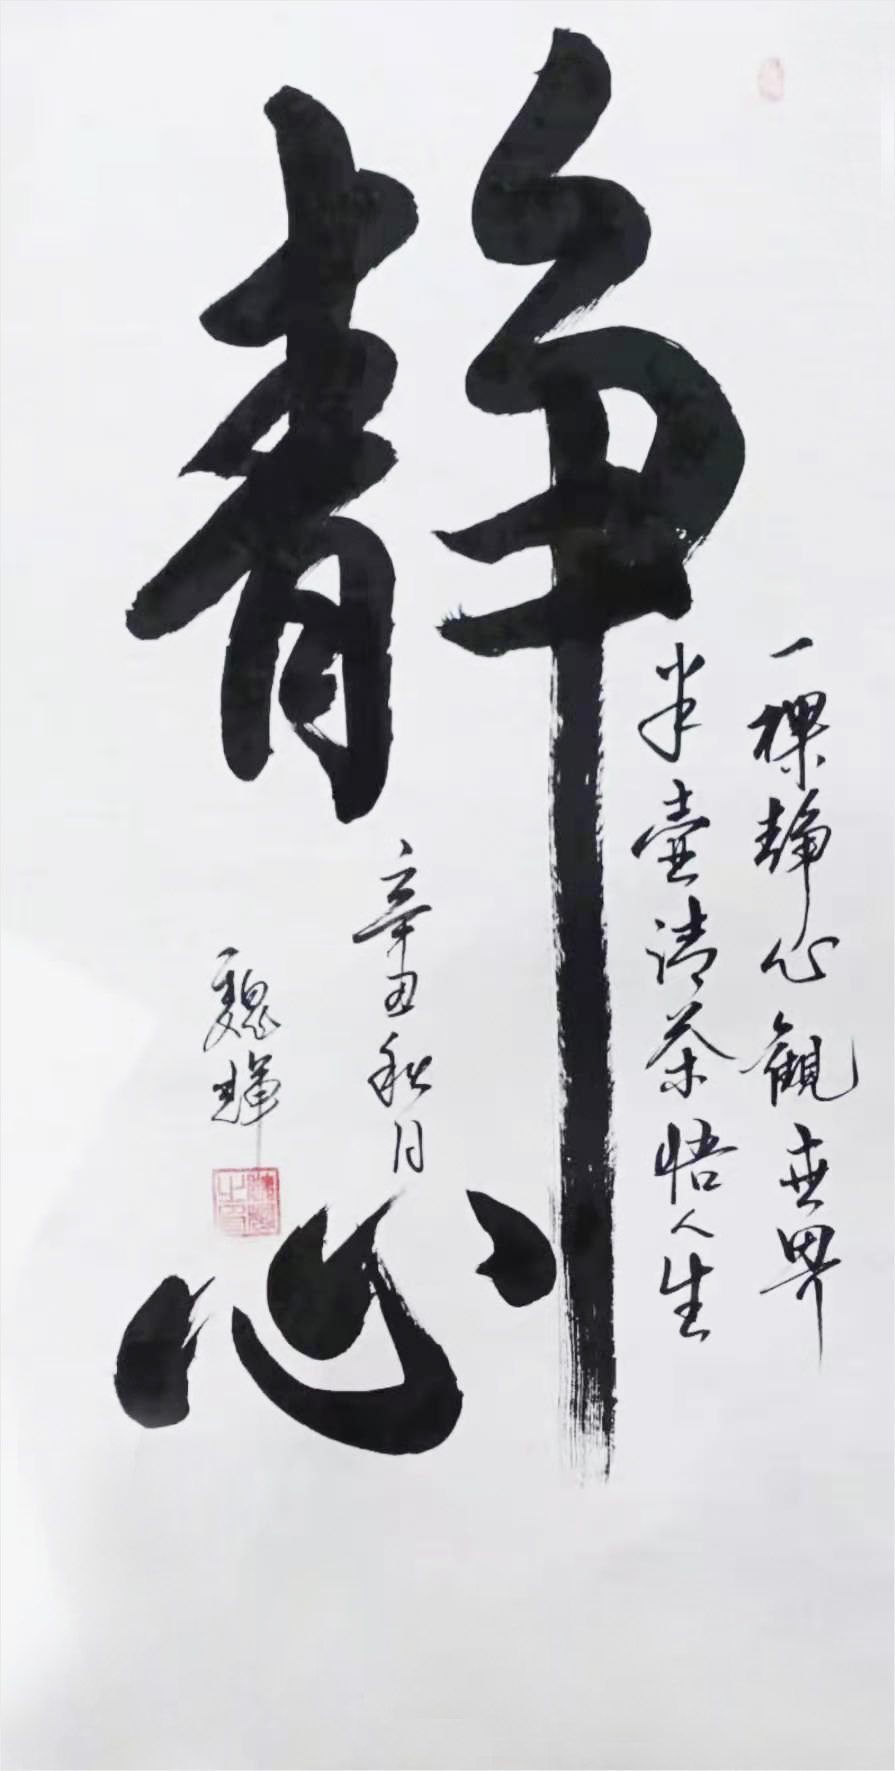 静心
一棵静心觀世界
半壶清茶悟人生
辛丑秋月
魏輝